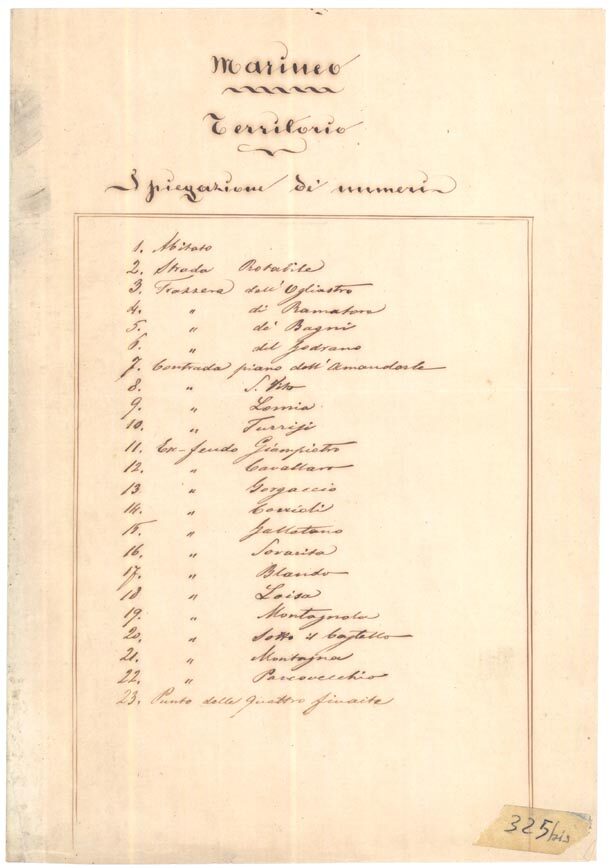 Marineo
Territorio
Spiegazione di numeri
1. Abitato
2. Strada Rotabile
3. Trazzera dell'Ogliastro
4. " di Ramatore
5. " de' Bagni
6. " del Godrano
7. Contrada piano dell'Amandorle
8. " S. Vito
9. " Lomia
10. " Turrisi
11. Ex-feudo Giampietro
12. " Cavallaro
13 " Gorgaccio
14. "
15. " Gallotano
16. "
17. " Blando
18 " Loisa
19. " Montagnola
20. " Sotto il Castello
21. " Montagna
22. " Parcovecchio
23. Punto delle Quattro finaite
325/bis